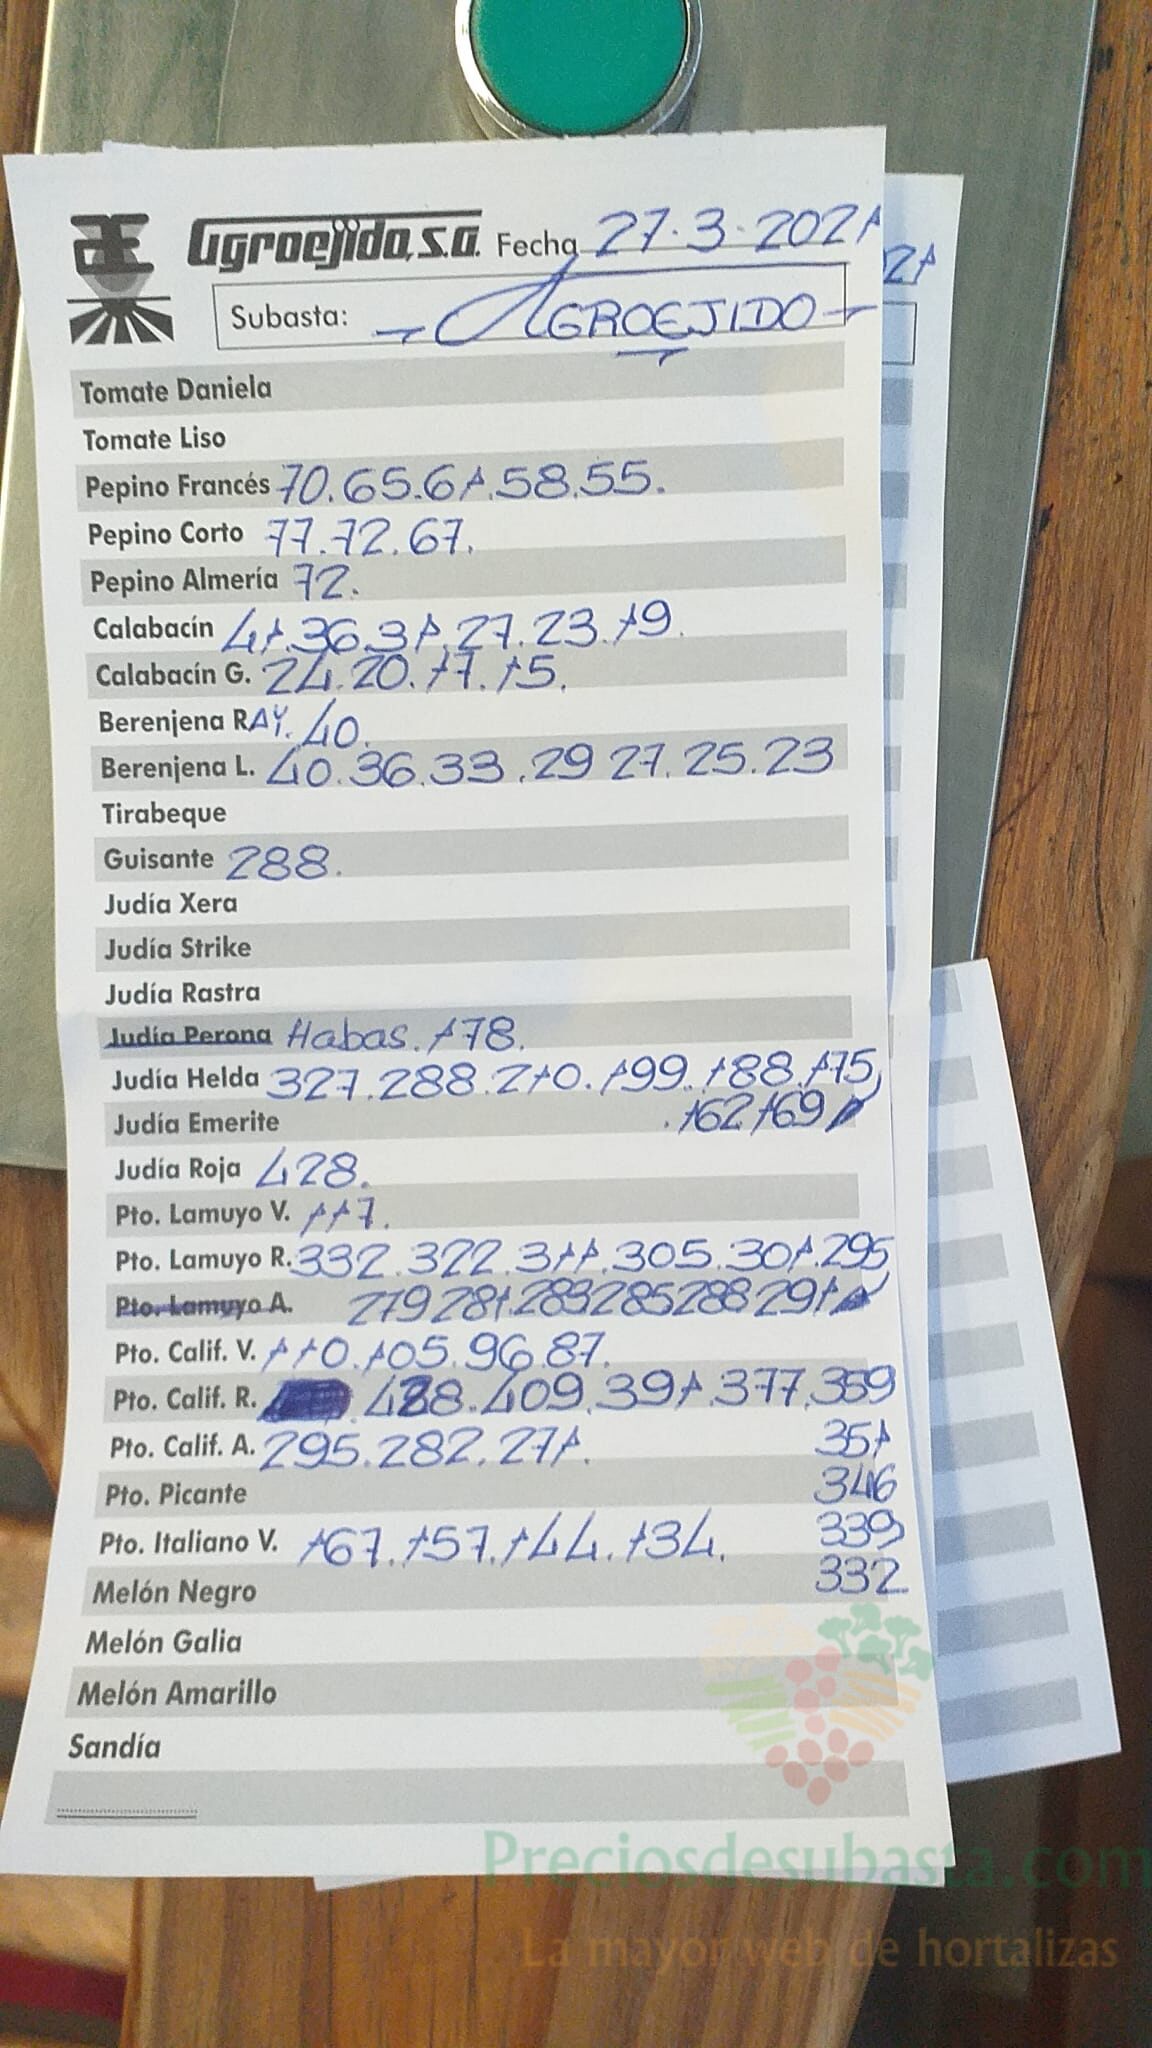 Agroejido, s.a. Fecha 27.3.2021
Subasta: AGROEJIDO
Tomate Daniela
Tomate Liso
Pepino Francés 70.65.61.58.55.
Pepino Corto 77.72.67.
Pepino Almería 72.
Calabacín 41.36.31.27.23.19.
Calabacín G. 24.20.17.15.
Berenjena RAY. 40.
Berenjena L. 40.36.33.29 27.25.23
Tirabeque
Guisante 288.
Judía Xera
Judía Strike
Judía Rastra
Judía Perona Habas. 178.
Judía Helda 327.288.210.199.188.175
Judía Emerite .162 169
Judía Roja 428.
Pto. Lamuyo V. 117.
Pto. Lamuyo R. 332.322.311.305.301.295
Pto. Lamuyo A. 279 281.283 285 288 291
Pto. Calif. V. 110.105.96.87.
Pto. Calif. R. 409.391.377.359
Pto. Calif. A. 295.282.271. 351
Pto. Picante 346
Pto. Italiano V. 167.157.144.134. 339
Melón Negro 332
Melón Galia
Melón Amarillo
Sandía
Preciosdesubasta.com
La mayor web de hortalizas